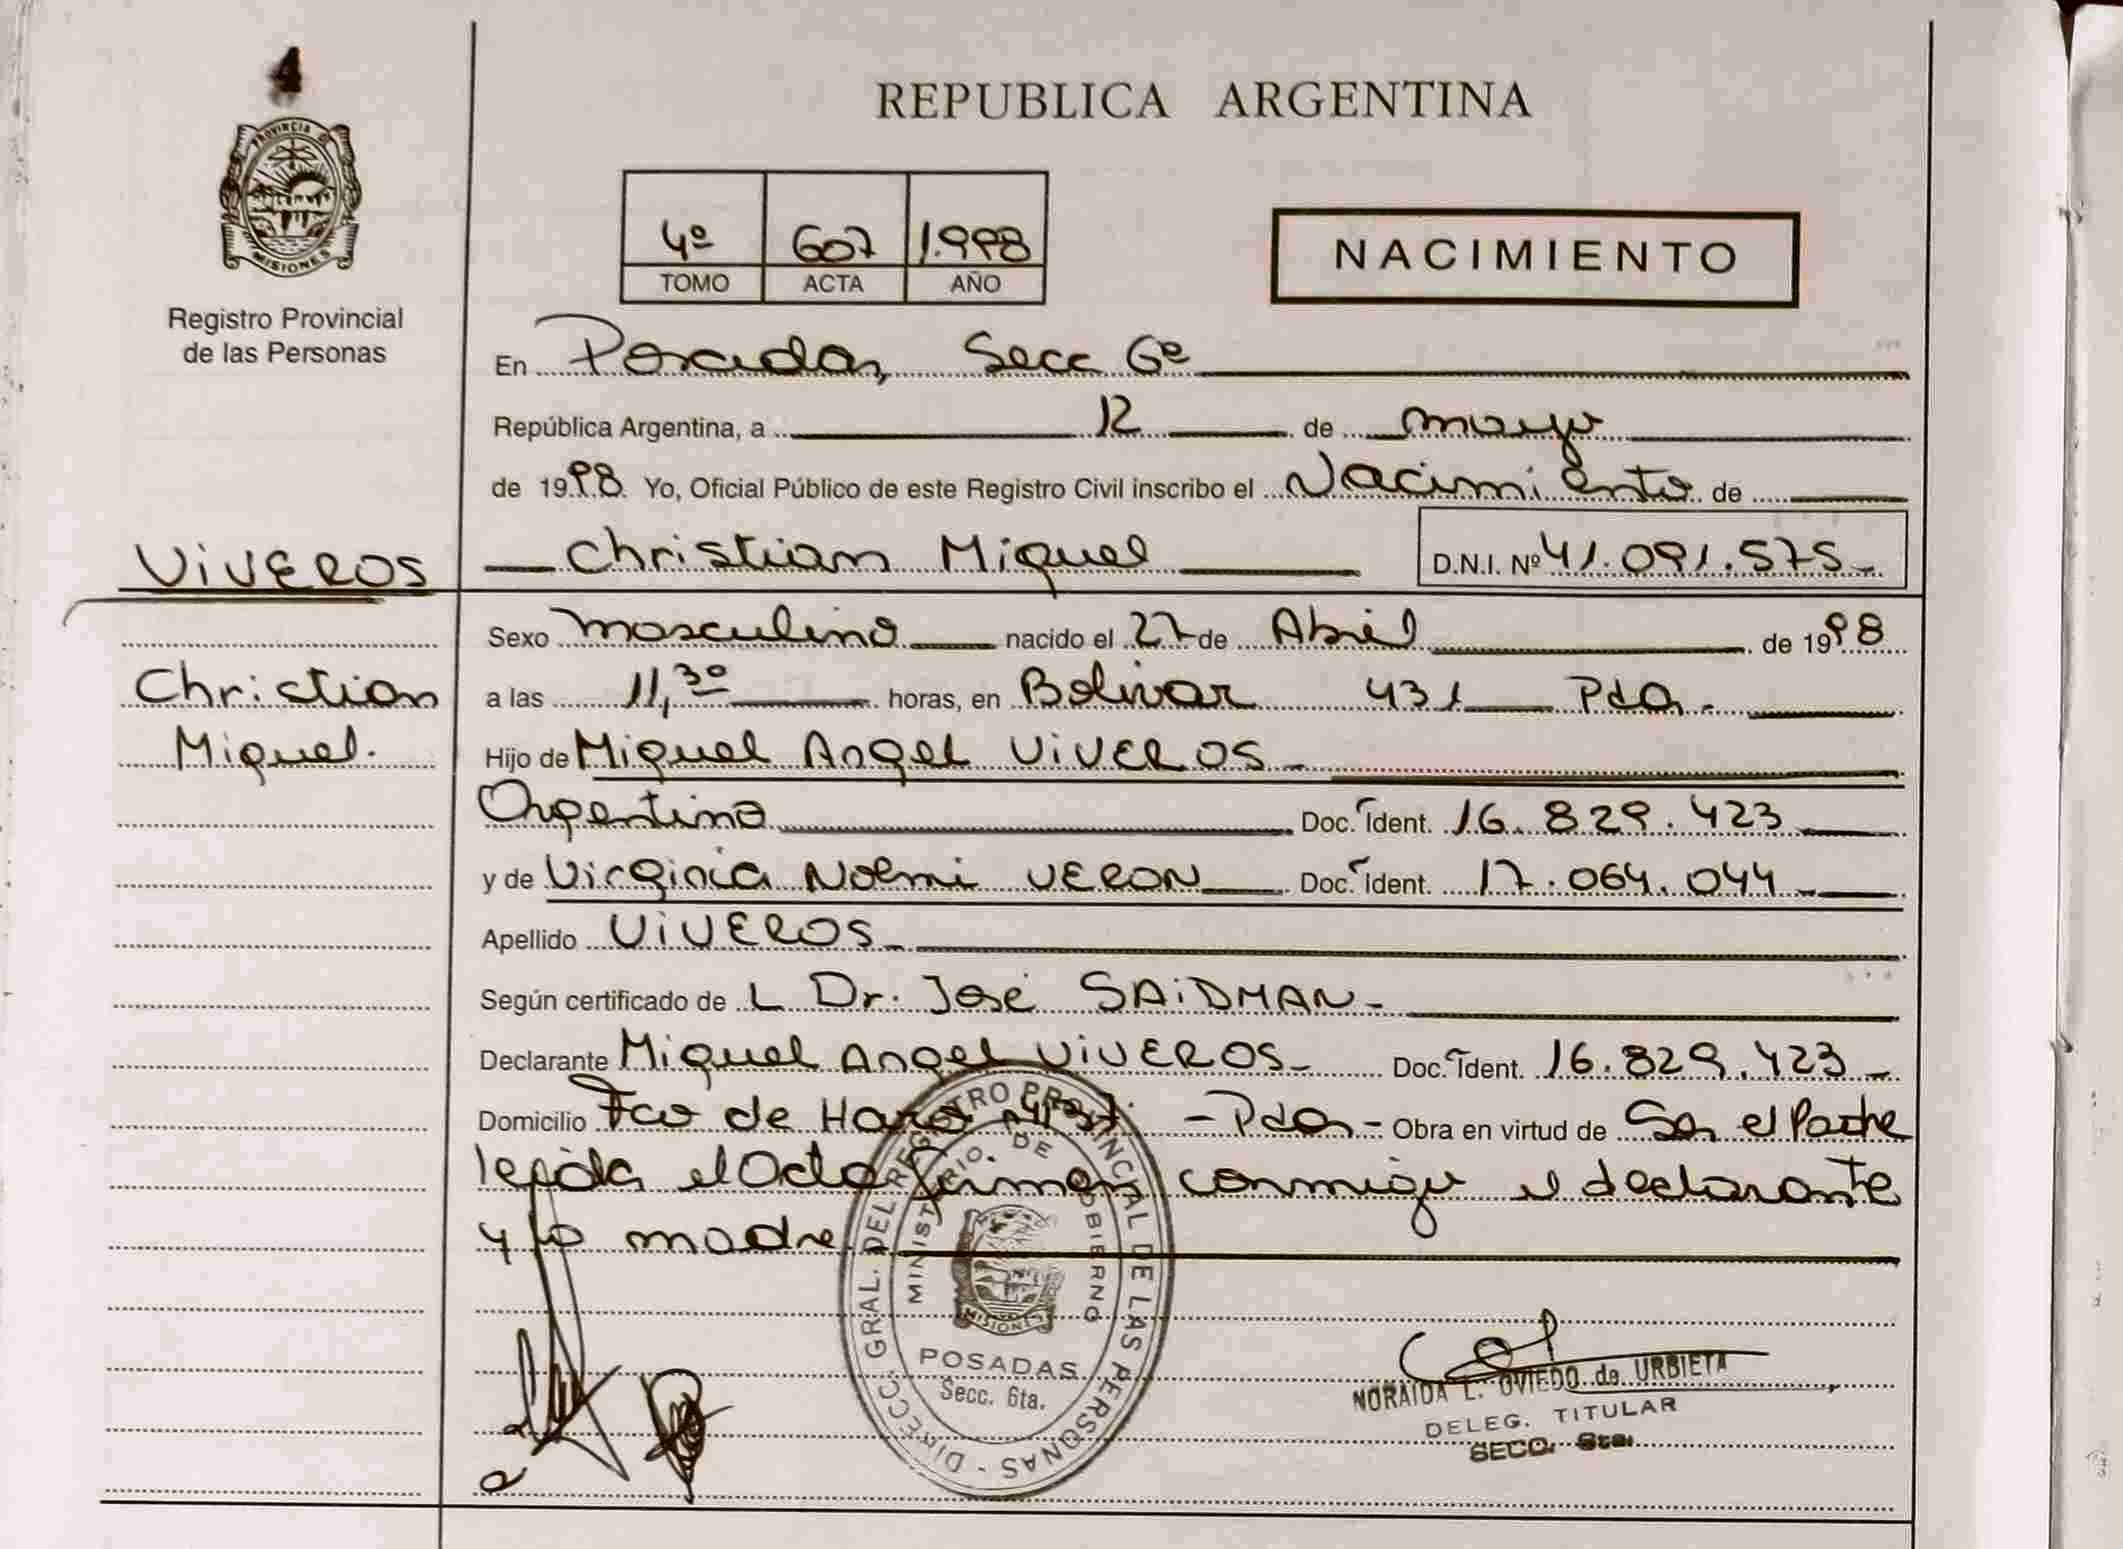 4
PROVINCIA DE
MISIONES
Registro Provincial
de las Personas
REPUBLICA ARGENTINA
4º 607 1.998
TOMO ACTA AÑO
NACIMIENTO
En Posadas, Secc 6ª
República Argentina, a 12 de mayo
de 1998 Yo, Oficial Público de este Registro Civil inscribo el Nacimiento de
VIVEROS
Christian Miguel D.N.I. Nº 41.091.575
Christian
Miguel.
Sexo masculino nacido el 27 de Abril de 1998
a las 11,30 horas, en Bolivar 431 Pdas.
Hijo de Miguel Angel VIVEROS
Argentino Doc. Ident. 16.829.423
y de Virginia Noemi VERON Doc. Ident. 17.064.044
Apellido VIVEROS
Según certificado de L Dr. José SAIDMAN
Declarante Miguel Angel VIVEROS Doc. Ident. 16.829.423
Domicilio Fco de Haro - Pdas - Obra en virtud de Ser el Padre
leída el Acta firman conmigo el declarante
y la madre
DIRECC. GRAL. DEL REGISTRO PROVINCIAL DE LAS PERSONAS
MINISTERIO DE GOBIERNO
MISIONES
POSADAS
Secc. 6ta.
NORAIDA L. OVIEDO de URBIETA
DELEG. TITULAR
SECC. 6ta.